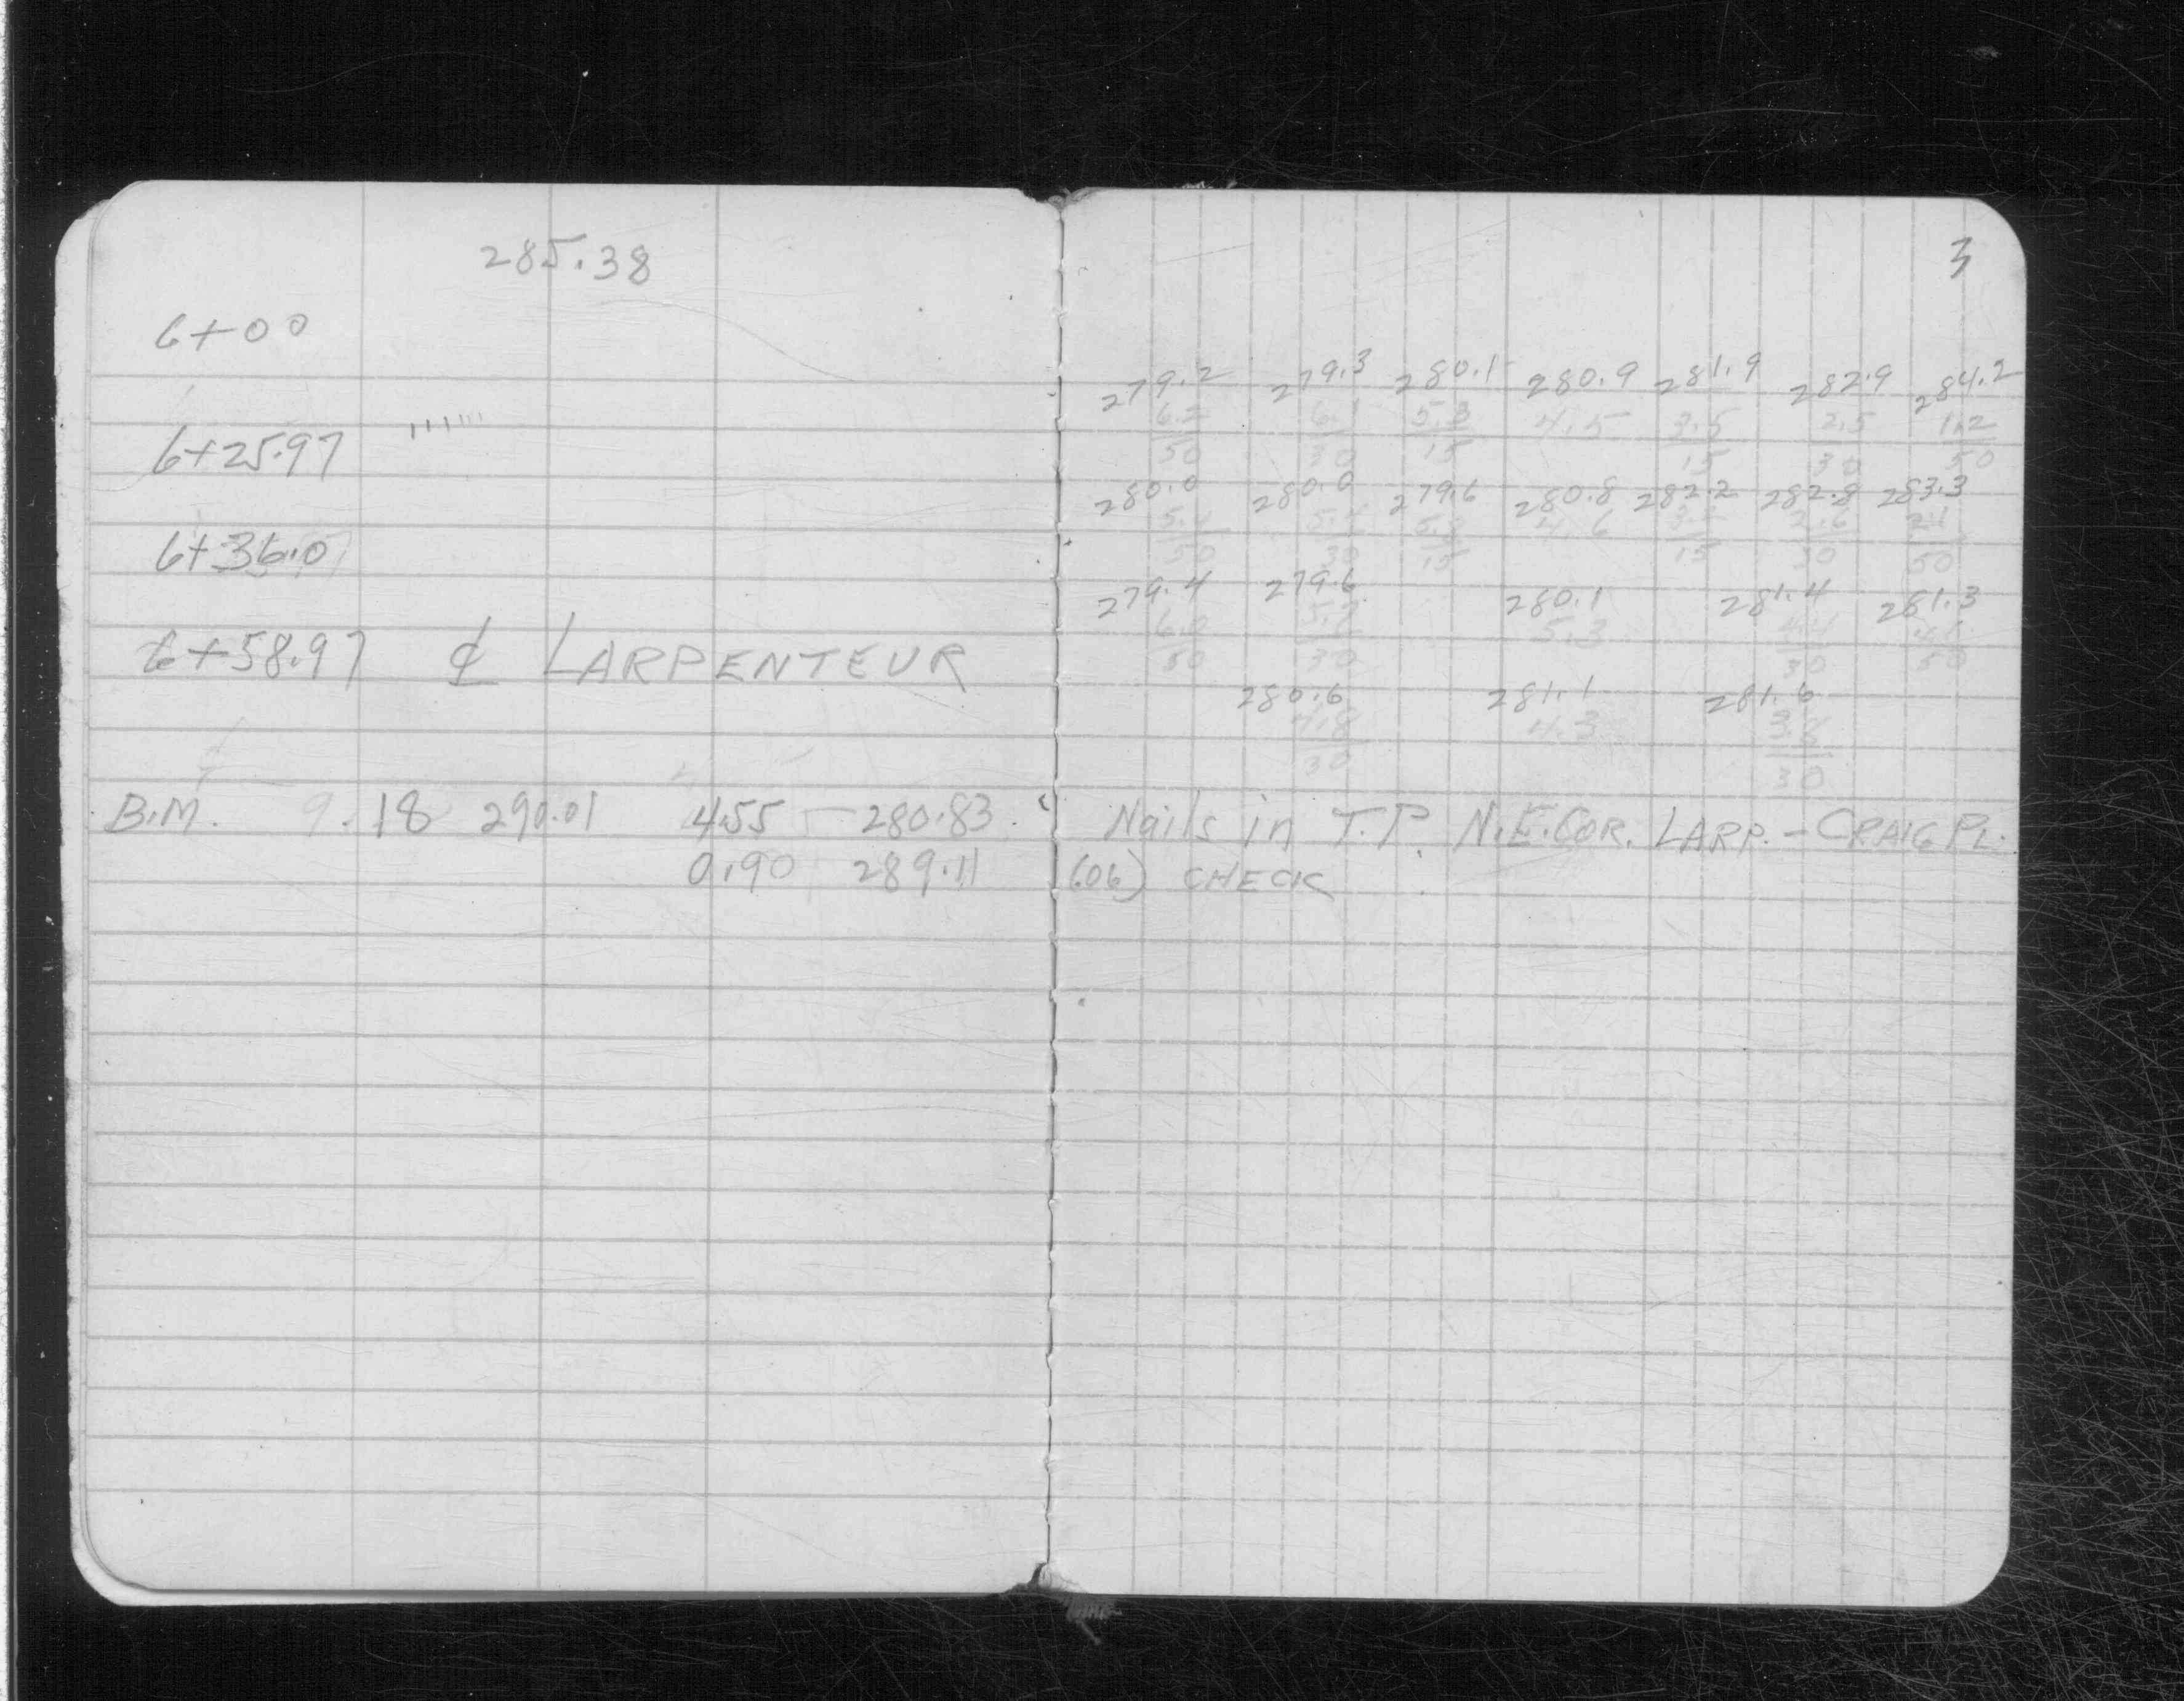 285.38
3
6+00
279.2 279.3 280.1 280.9 281.9 282.9 284.2
6.2 6.1 5.3 4.5 3.5 2.5 1.2
50 30 15 15 30 50
6+25.97
280.0 280.0 279.6 280.8 282.2 282.8 283.3
5.4 5.4 4.6 2.6 2.1
50 30 15 15 30 50
6+36.0
279.4 279.6 280.1 281.4 281.3
6.0 5.3 4.1
50 30 30 50
6+58.97 ₵ LARPENTEUR
280.6 281.1 281.6
4.8 4.3 3.8
30 30
B.M. 9.18 290.01 4.55 280.83 Nails in T.P. N.E. COR. LARP. - CRAIG PL.
0.90 289.11 (06) CHECK